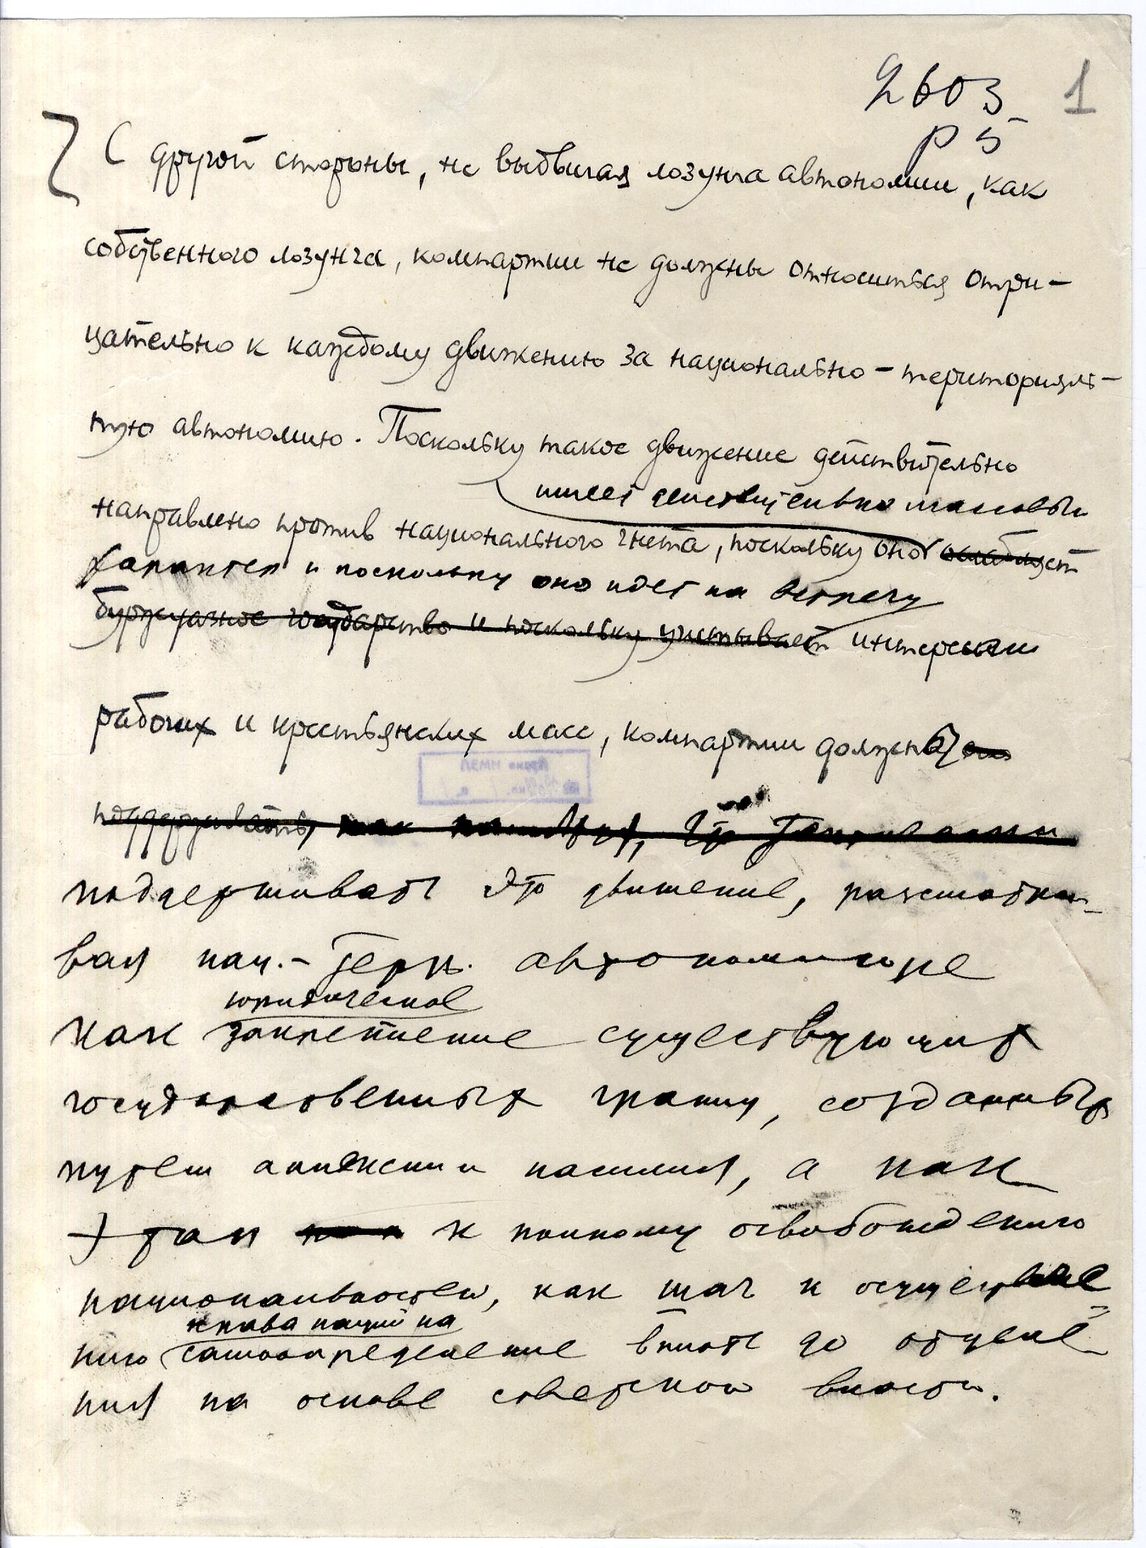 2603 1
р 5
С другой стороны, не выдвигая лозунга автономии, как
собственного лозунга, компартии не должны относиться отри-
цательно к каждому движению за национально-територияль-
ную автономию. Поскольку такое движение действительно
имеет действительно массовый
направлено против национального гнета, поскольку оно ослабляет
характер и поскольку оно идет на встречу
буржуазное государство и поскольку учитывает интересам
рабочих и крестьянских масс, компартии должны
поддерживать, как
поддерживать это движение, рассматри-
вая нац.-терр. автономию не
юридическое
как закрепление существующих
государственных границ, созданных
путем аннексии и насилия, а как
этап к полному освобождению
национальностей, как шаг к осуществле
права наций на
нию самоопределение вплоть до отделе-
ния на основе советской власти.